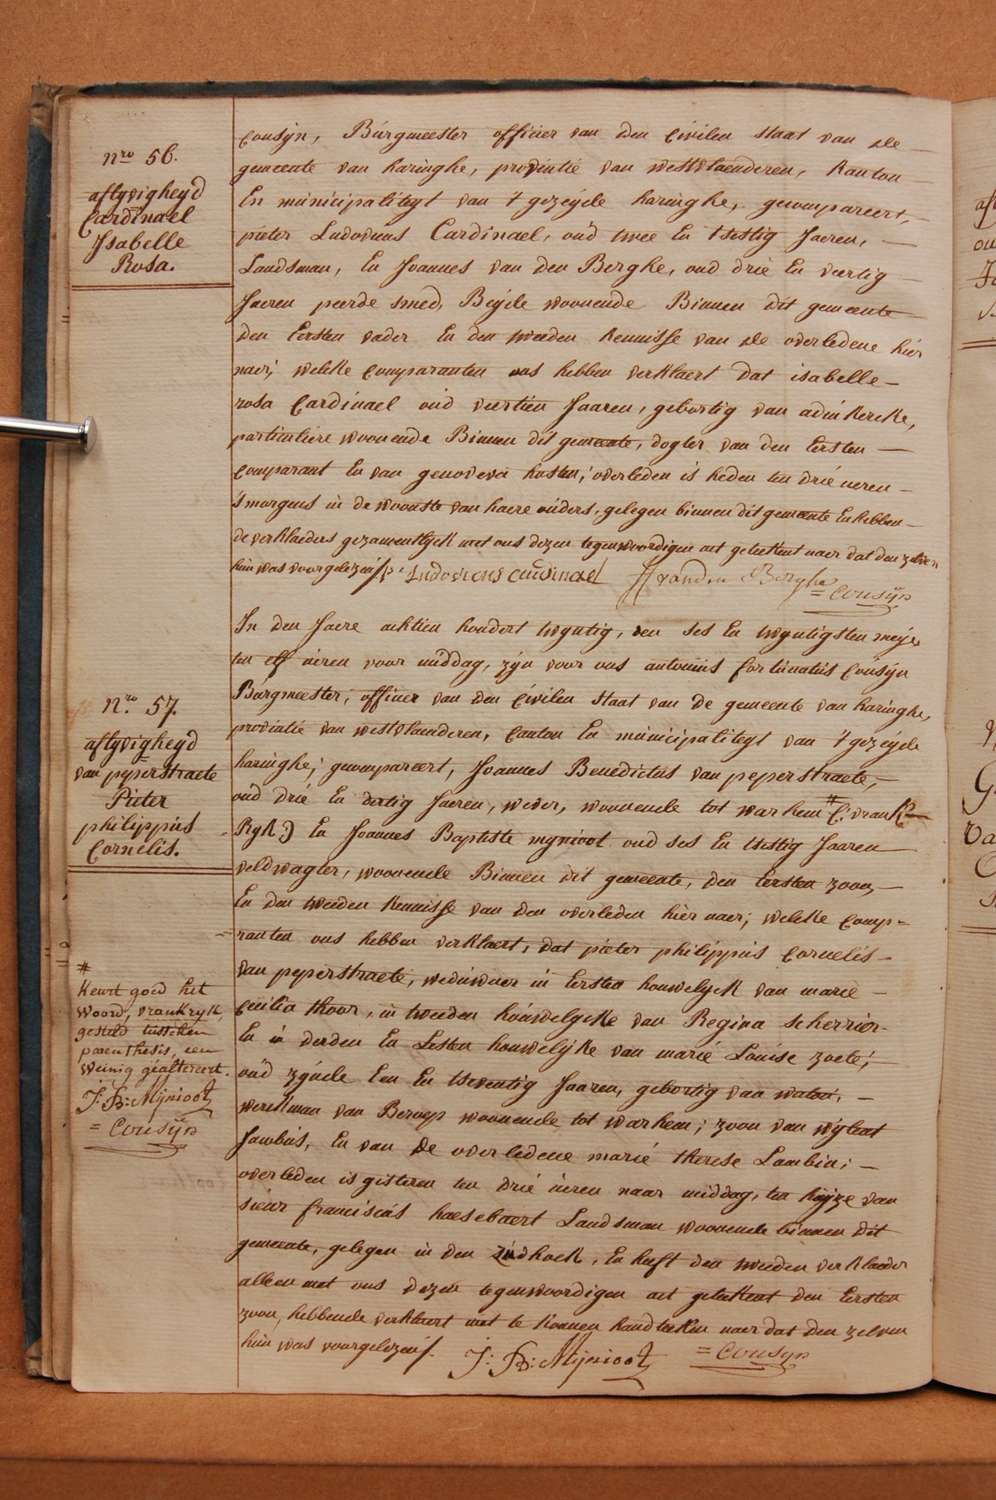 nro 56.
aflyvigheyd
Cardinael
Isabelle
Rosa.
Cousyn, Burgmeester officier van den Civilen staat van de
gemeente van haringhe, provintie van westvlaenderen, kanton
En municipaliteyt van 't gezeyde haringhe, gecompareert,
pieter Ludovicus Cardinael, oud twee En tsestig Jaeren,
Landsman, En Joannes van den Berghe, oud drie En veertig
Jaeren peerde smed, Beyde woonende Binnen dit gemeente
den Eersten vader En den tweeden kennisse van de overledene hier
naer; welke Comparanten ons hebben verklaert dat isabelle
rosa Cardinael oud veertien Jaaren, gebortig van adinkercke,
particuliere woonende Binnen dit gemeente, dogter van den Eersten
Comparant En van genoveva hosten; overleden is heden ten drie ueren
'smorgens in de woonste van haere ouders, gelegen binnen dit gemeente En hebben
de verklaeders gezamentlyk met ons dezen tegenwoordigen act geteekent naer dat den zelven
hun was voorgelezen /. p. Ludovicus cardinael J vanden Berghe
= Cousyn
nro. 57.
aflyvigheyd
van pyperstraete
Pieter
philippus
Cornelis.
In den Jaere achtien hondert twyntig, den ses En twyntigsten meye
ten elf ueren voor middag, zyn voor ons antonius fortunatus Cousyn
Burgmeester, officier van den Civilen staat van de gemeente van haringhe,
provintie van westvlaenderen, Canton En municipaliteyt van 't gezeyde
haringhe; gecompareert, Joannes Benedictus van peperstraete,
oud drie En dertig Jaeren, wever, woonende tot warhem # (: vrank
Ryk:) En Joannes Baptiste mynioot oud ses En tsestig Jaaren
veldwagter, woonende Binnen dit gemeente, den Eersten zoon
En den tweeden kennisse van den overleden hier naer; welke Comp-
ranten ons hebben verklaert, dat pieter philippus Cornelis
van pyperstraete, weduwaer in Eersten houwelyck van marie
Cecilia thoor, in tweeden houwelycke van Regina scherrier
En in derden En Lesten houwelyke van marie Louise zoete;
oud zynde Een En tseventig Jaaren, gebortig van watou,
werkman van Beroep woonende tot warhem; zoon van wylent
Jacobus, En van de overledene marie therese Lambin;
overleden is gisteren ten drie ueren naer middag, ten huyze van
sieur franciscus haesebaert Landsman woonende binnen dit
gemeente, gelegen in den zudhoek, En heeft den tweeden verklaeder
alleen met ons dezen tegenwoordigen act geteekent den Eersten
zoon, hebbende verklaert niet te konnen handteeken naer dat den zelven
hun was voorgelezen /. J: B: Mijnioot = Cousyn
#
keurt goed het
woord, vrankryk,
gesteld tusschen
parenthesis, een
weinig gialtereert.
J: B: Mijnioot
= Cousyn